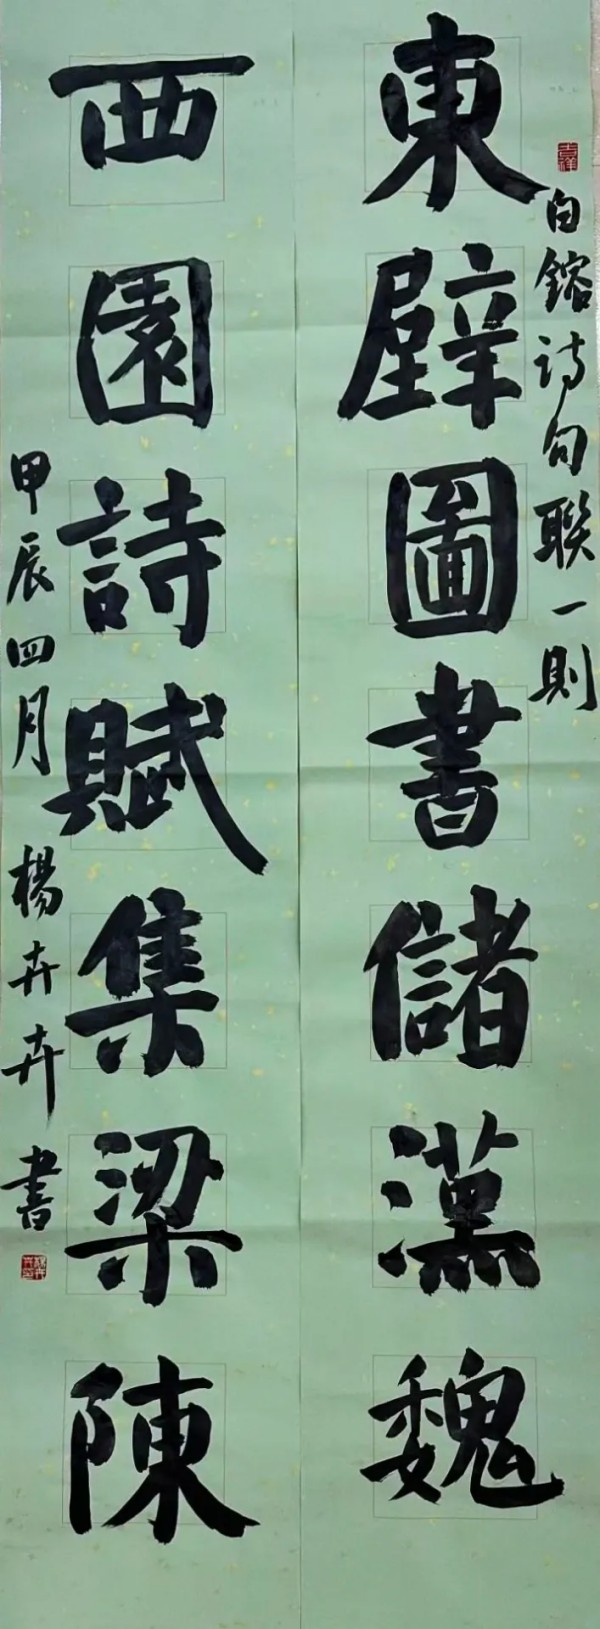 東壁圖書儲漢魏
白鎔诗句联一则
西園詩賦集梁陳
甲辰四月 楊卉卉書
吉祥